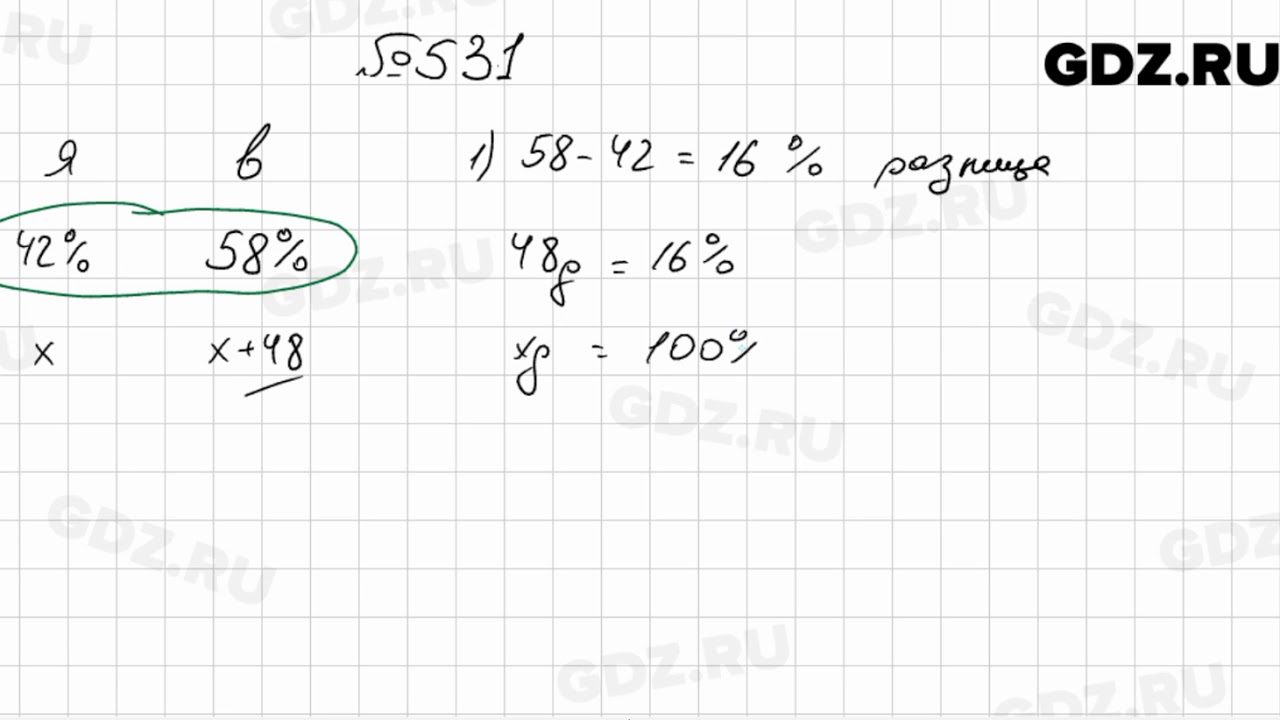 №531
GDZ.RU
я в
1) 58 - 42 = 16 % разница
42% 58%
48д = 16%
x x + 48
xд = 100%